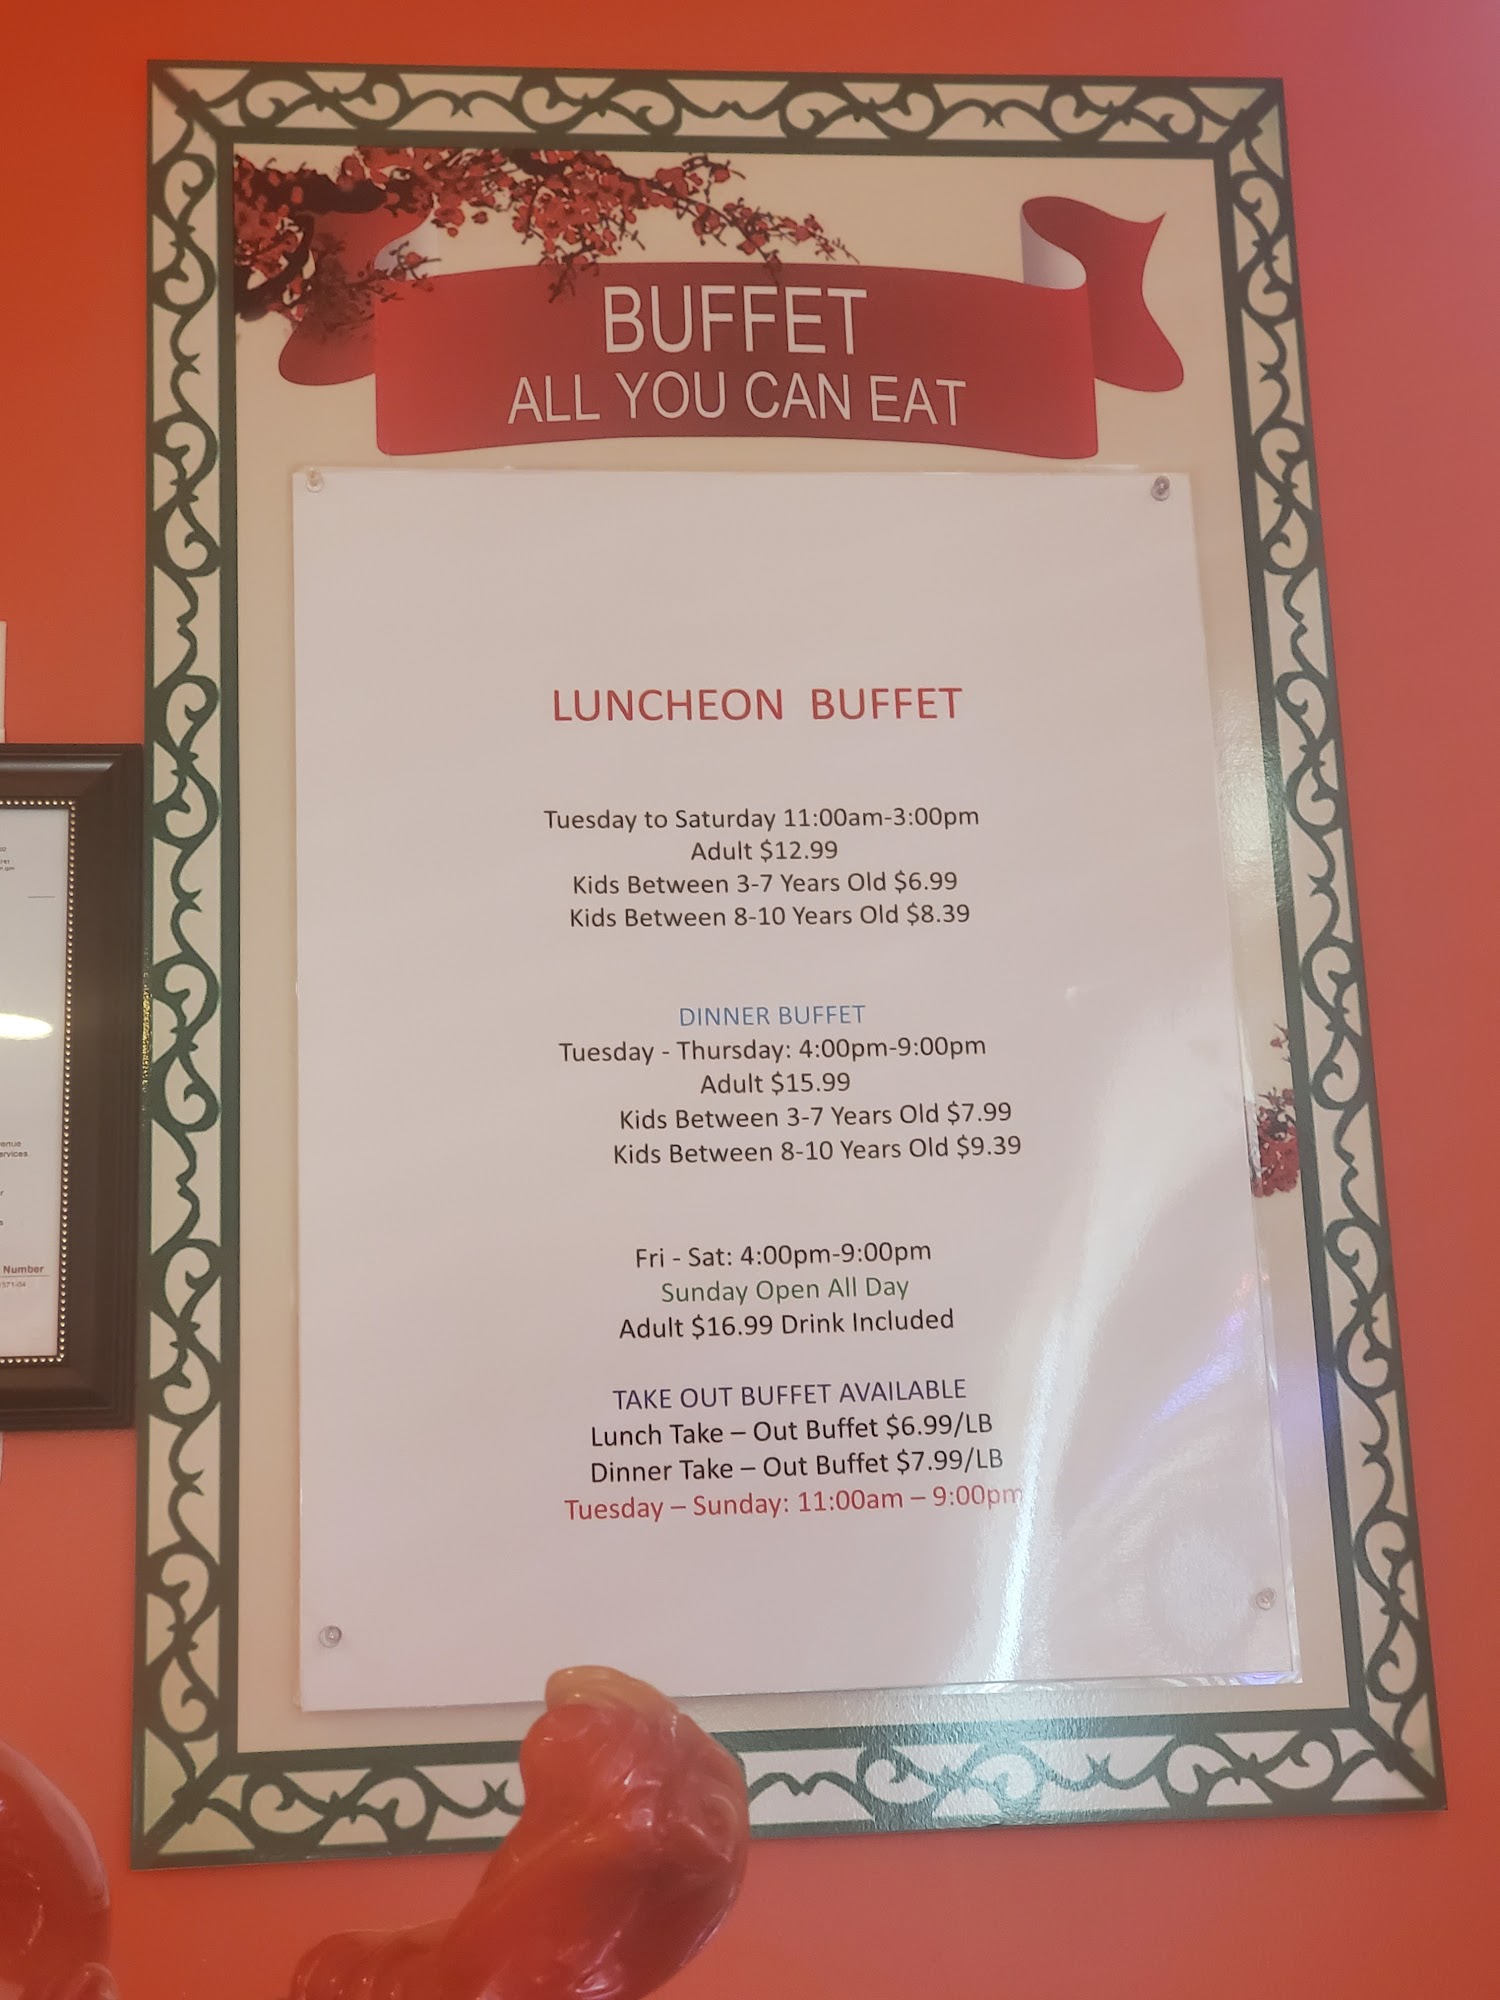 BUFFET
ALL YOU CAN EAT
LUNCHEON BUFFET
Tuesday to Saturday 11:00am-3:00pm
Adult $12.99
Kids Between 3-7 Years Old $6.99
Kids Between 8-10 Years Old $8.39
DINNER BUFFET
Tuesday - Thursday: 4:00pm-9:00pm
Adult $15.99
Kids Between 3-7 Years Old $7.99
Kids Between 8-10 Years Old $9.39
Fri - Sat: 4:00pm-9:00pm
Sunday Open All Day
Adult $16.99 Drink Included
TAKE OUT BUFFET AVAILABLE
Lunch Take – Out Buffet $6.99/LB
Dinner Take – Out Buffet $7.99/LB
Tuesday – Sunday: 11:00am – 9:00pm
Number